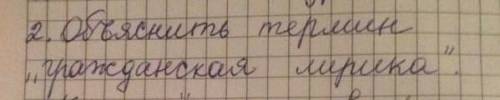 2. Объяснить термин
„гражданская лирика".